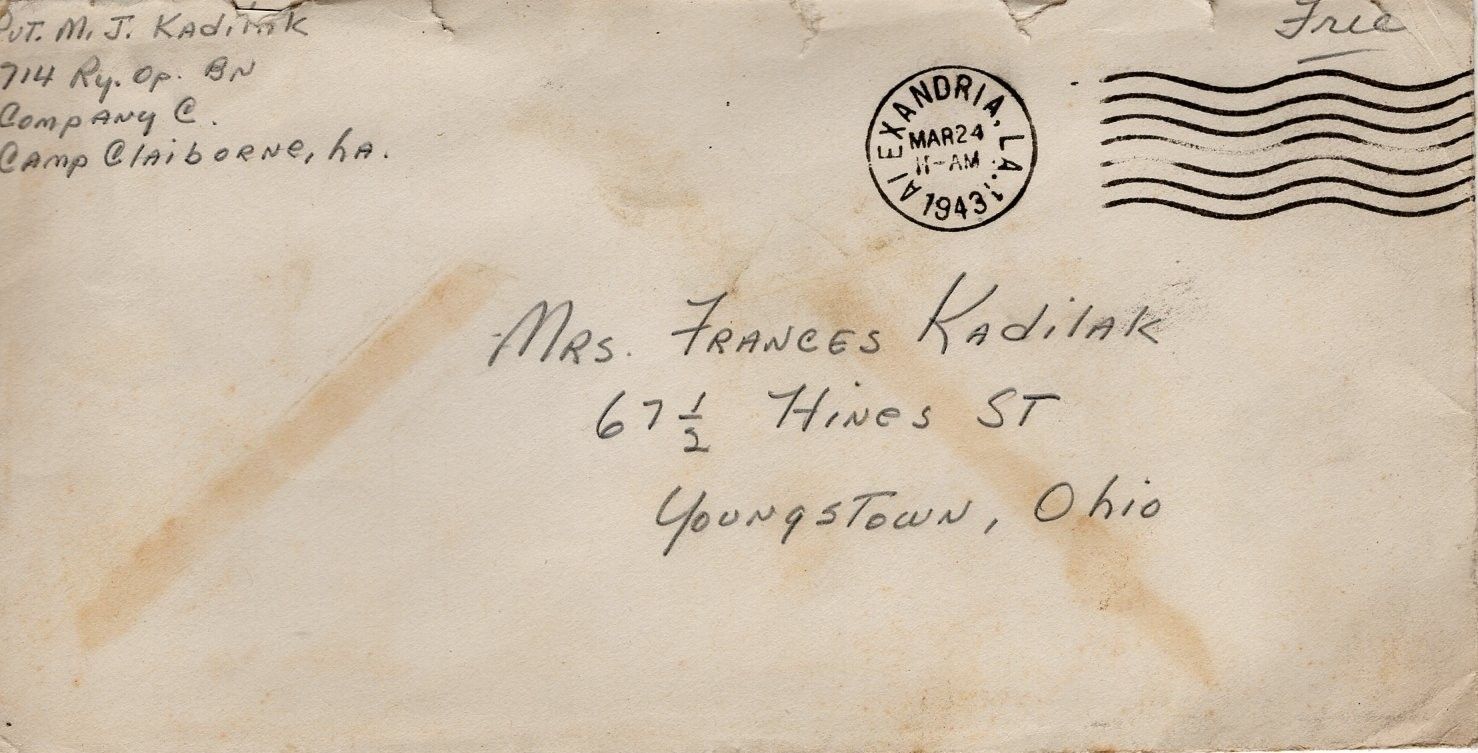 Pvt. M. J. Kadilak
714 Ry. Op. BN
Company C.
Camp Claiborne, La.
Free
ALEXANDRIA, LA. 1
MAR 24
11-AM
1943
Mrs. Frances Kadilak
67 1/2 Hines ST
Youngstown, Ohio